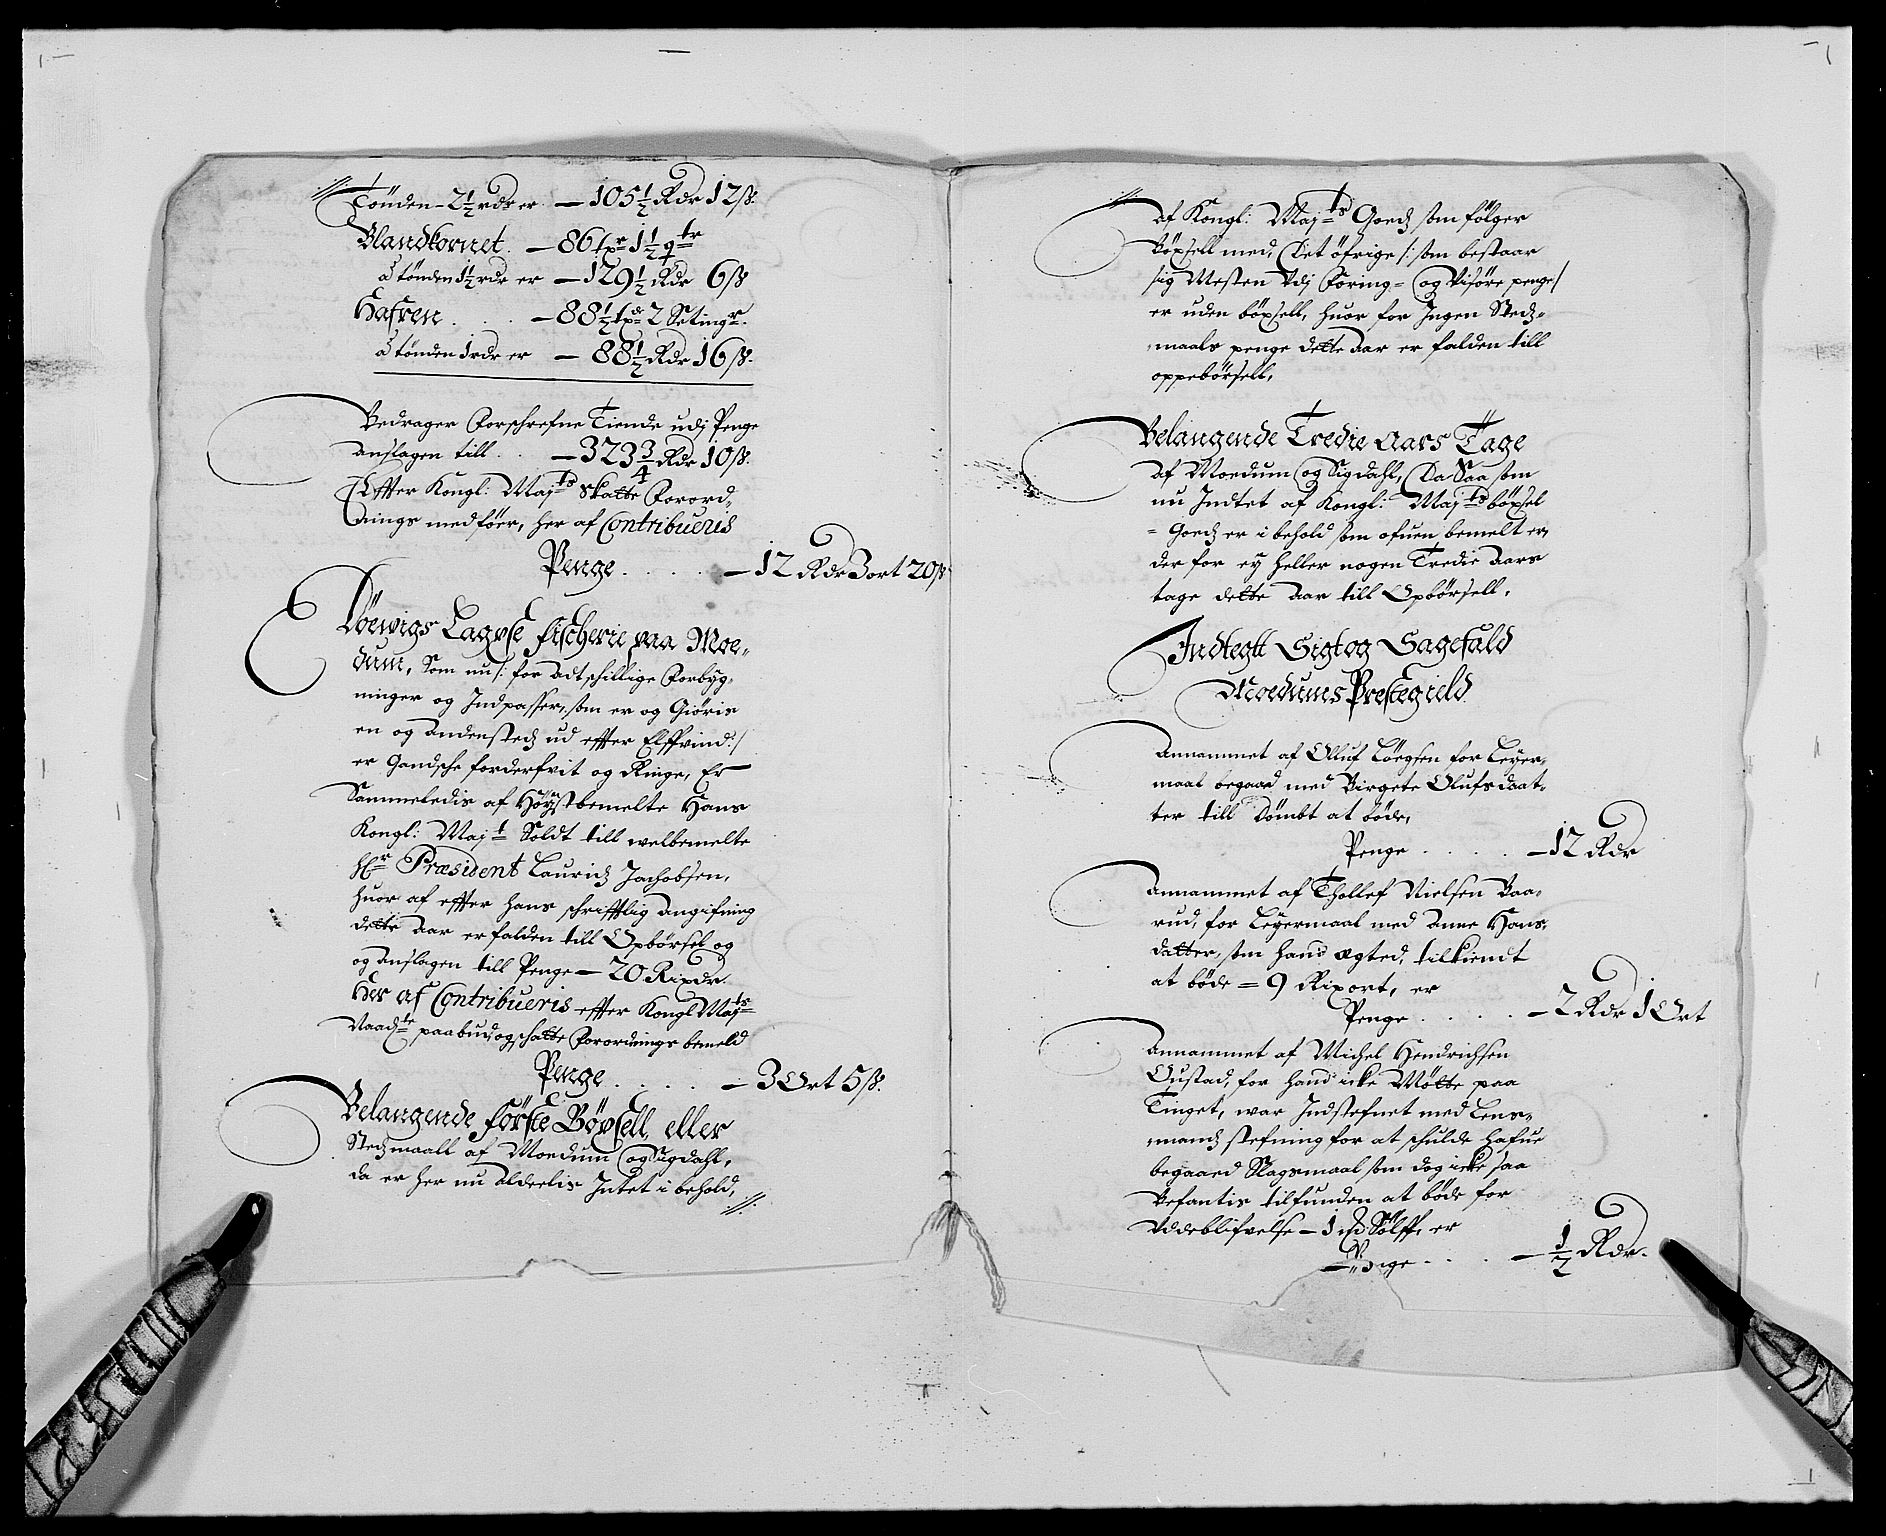 Tönden – 2½ rdr er – 105½ Rdr 12 ß.
Blandkornet. – 86 txr 1½ qtr
à tönden 1½ rdr er – 129½ Rdr 6 ß
Hafren . . . – 88½ td 2 Setingr.
à tönden 1 rdr er – 88½ Rdr 16 ß.
Bedrager Forschrefne Tiende udj Penge
Anslagen till . . – 323¾ Rdr 10 ß.
Effter Kongl: Majts Skatte Forord,,
nings medföer, her af Contribueris
Penge . . . . – 12 Rdr 3 ort 20 ß
Döewigs Laxse fischerie paa Moe,,
dum, Som nu /: for adtschillige Forbyg,,
ninger og Indpasser, som er og Giöris
en og andensteds ud effter Elffvind :/
er Gandsche forderfvit og Ringe, Er
Sammeledis af Höystbemelte Hans
Kongl: Majt Soldt till welbemelte
Hr Præsident Lauridz Jachobsen,
huor af effter hans schrifftlig angifning
dette Aar er falden till Opbörsel og
og Anslagen till Penge – 20 Rixdr.
Her af Contribueris effter Kongl Majts
Naadte paabud og schatte Forordnings bemeld
Penge . . . . – 3 Ort 5 ß.
Belangende förste Böxsell, eller
Stedzmaall af Moedum og Sigdahl,
da er her nu Aldeelis Intet i behold,
af Kongl: Majts Goedz som fölger
böxsell med, Det öfrige /: som bestaar
sig Mesten Udj Foring- og Wisöre penge /
er uden böxsell, huor for Ingen Stedz-
maals penge dette Aar er falden till
oppebörsell,
Belangende Tredie Aars Tage
Af Moedum og Sigdahl, Da Saa som
nu Indtet af Kongl: Majts böxsel
= Goedz er i behold som ofuen bemelt er,
der for ey heller nogen Tredie Aars
tage dette Aar till Opbörsell,
Indtegtt Sigt og Sagefald
Moedums Prestegield
Annammet af Oluf Löegsen for Leyer-
maal begaaed med Birgete Olufsdaat-
ter till Dömbt at böde,
Penge . . . . – 12 Rdr
Annammet af Thollef Nielsen Baa-
rud, for Leyermaal med Anne Hans,
datter, som hand ægted, tilkiendt
at böde = 9 Rixort, er
Penge . . . . – 2 Rdr 1 Ort
Annammet af Michel Hendrichsen
Oustad, for hand icke Mötte paa
Tinget, war Indstefnet med Lens-
mandz stefning for at schulde hafue
begaaed Slagsmaal som dog icke saa
befantis tilfunden at böde for
Uddeblifvelse – 1 Sölff, er
Penge . . . – ½ Rdr.